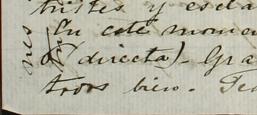 tristes y escla
En este momen
(directa). Gra
todos bien. Te